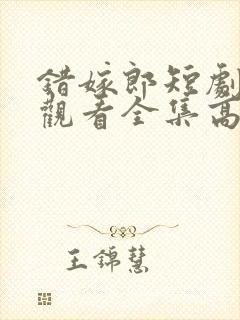 錯嫁郎短劇
觀看全集高
王錦慧